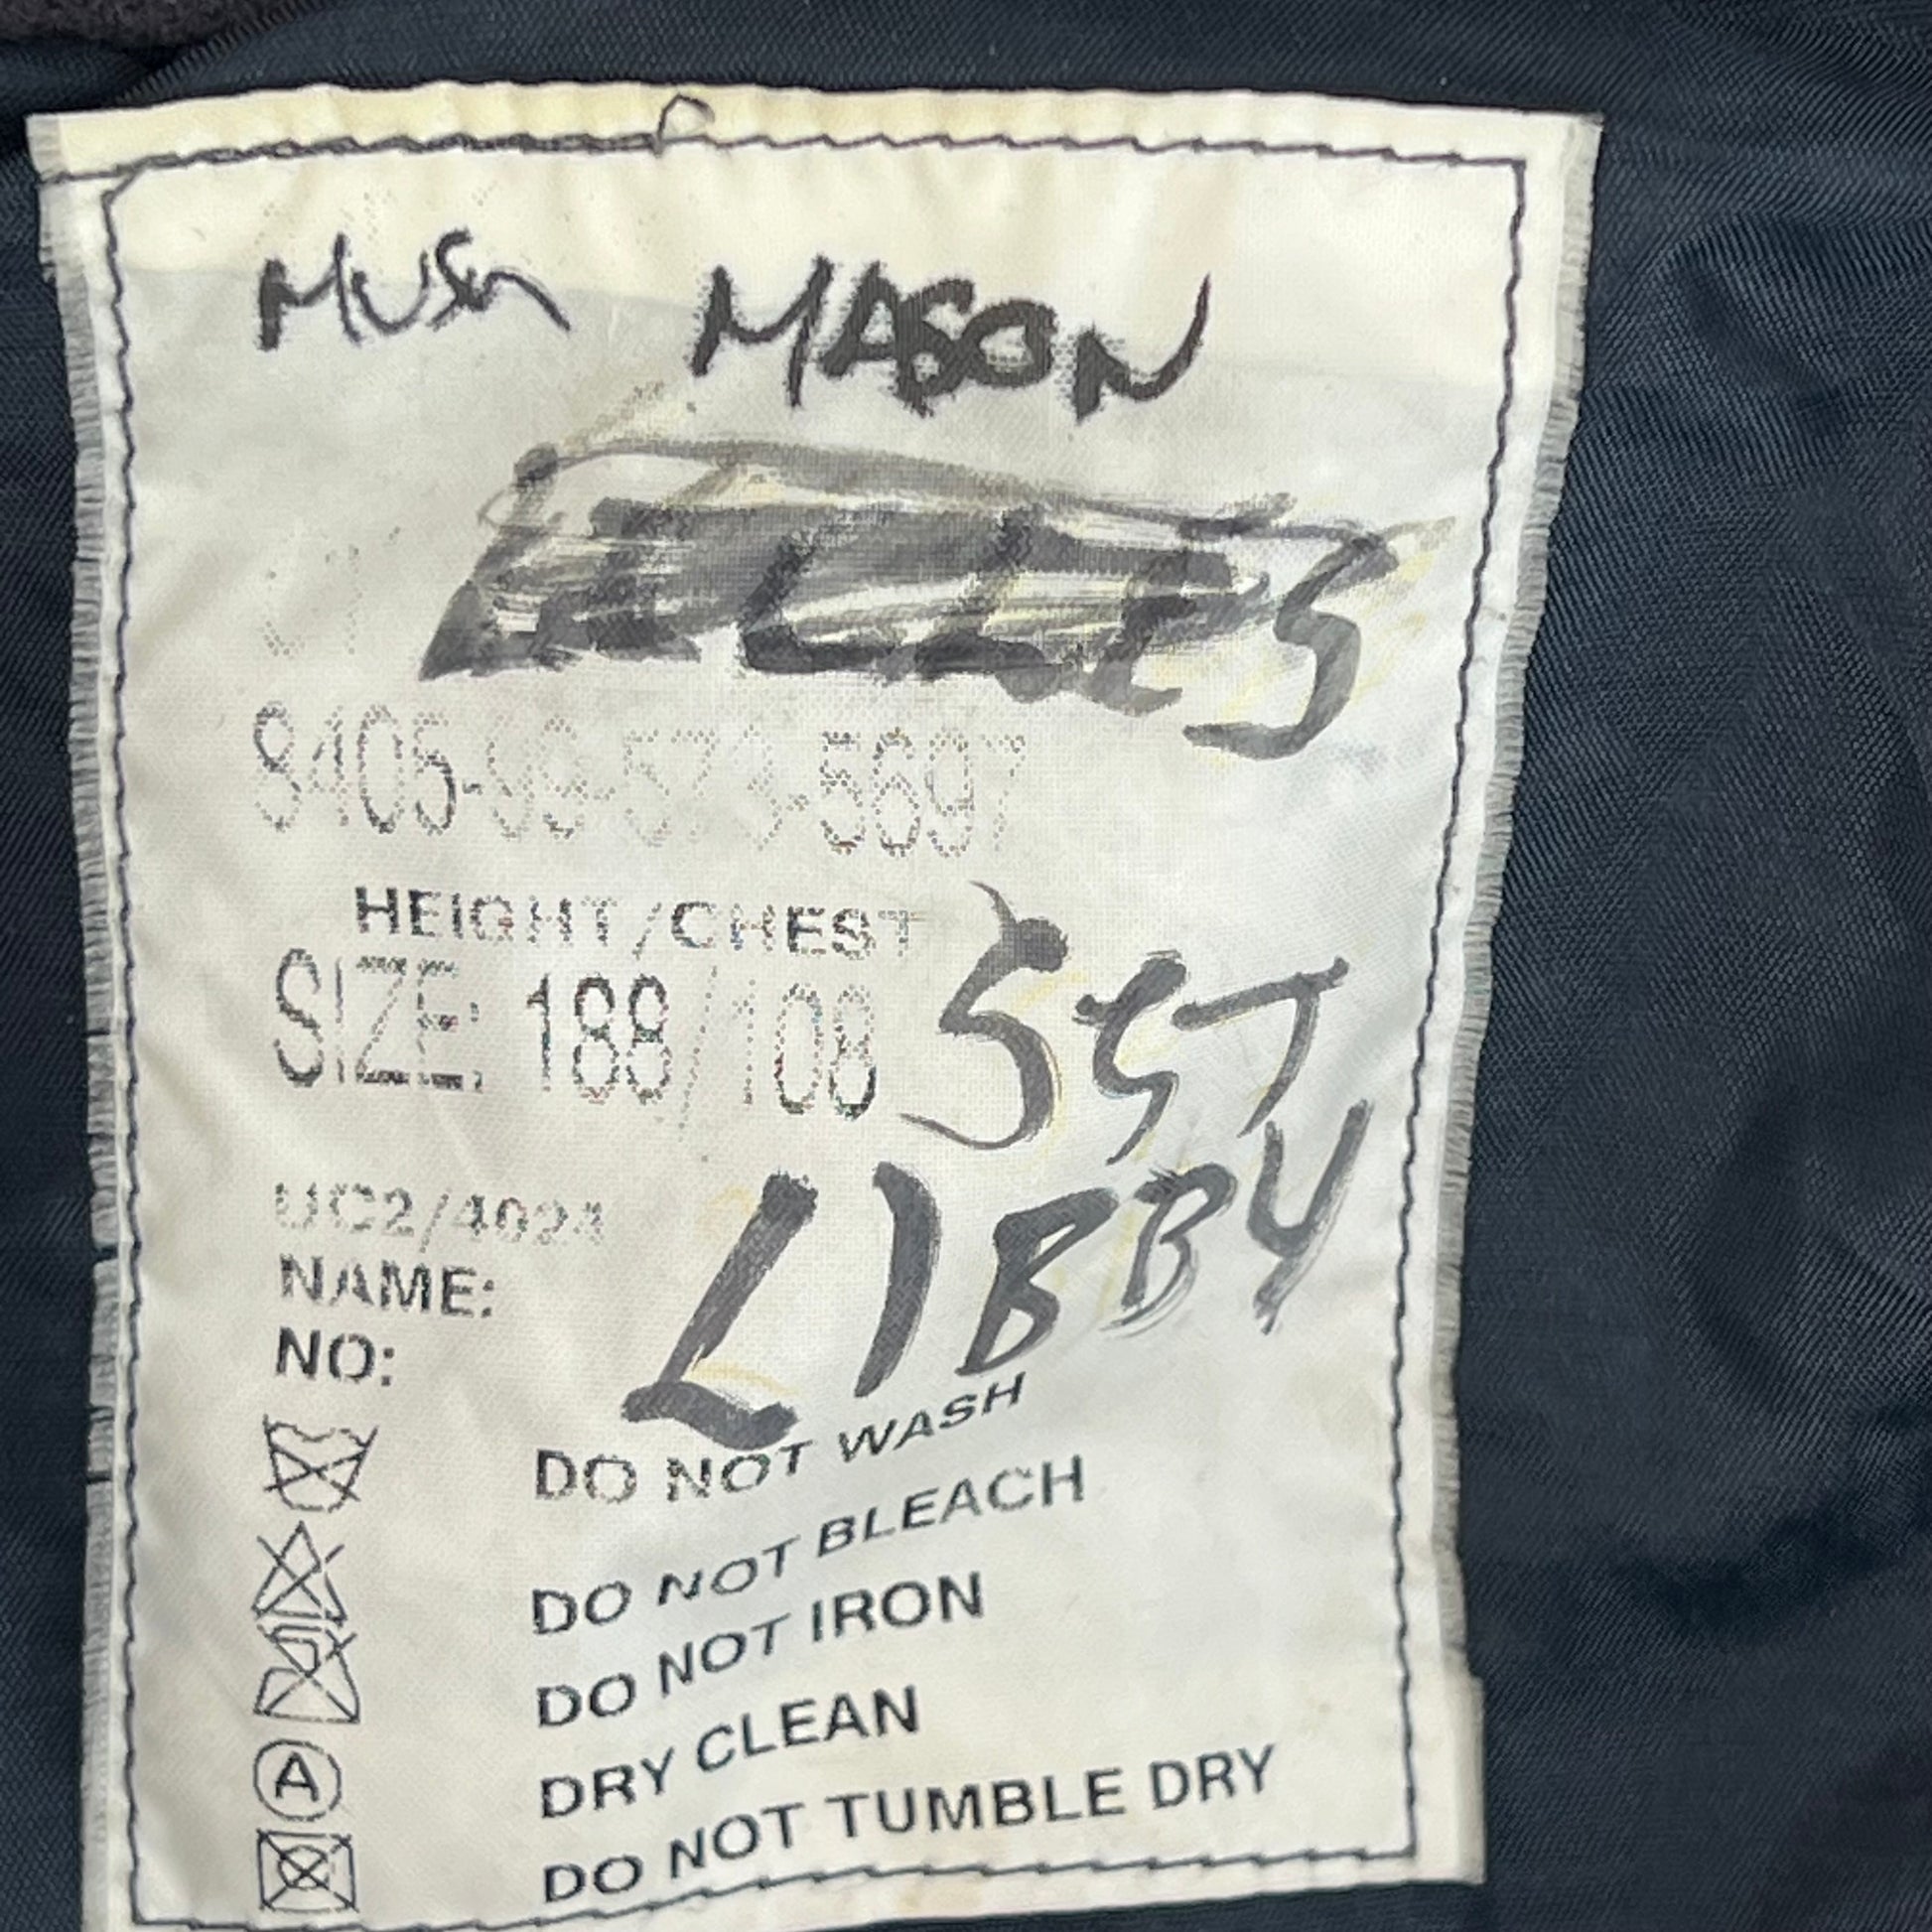 MUSN MASON
8405-99-573-5697
HEIGHT/CHEST
SIZE: 188/108
SGT
LIBBY
UC2/4024
NAME:
NO:
DO NOT WASH
DO NOT BLEACH
DO NOT IRON
A DRY CLEAN
DO NOT TUMBLE DRY